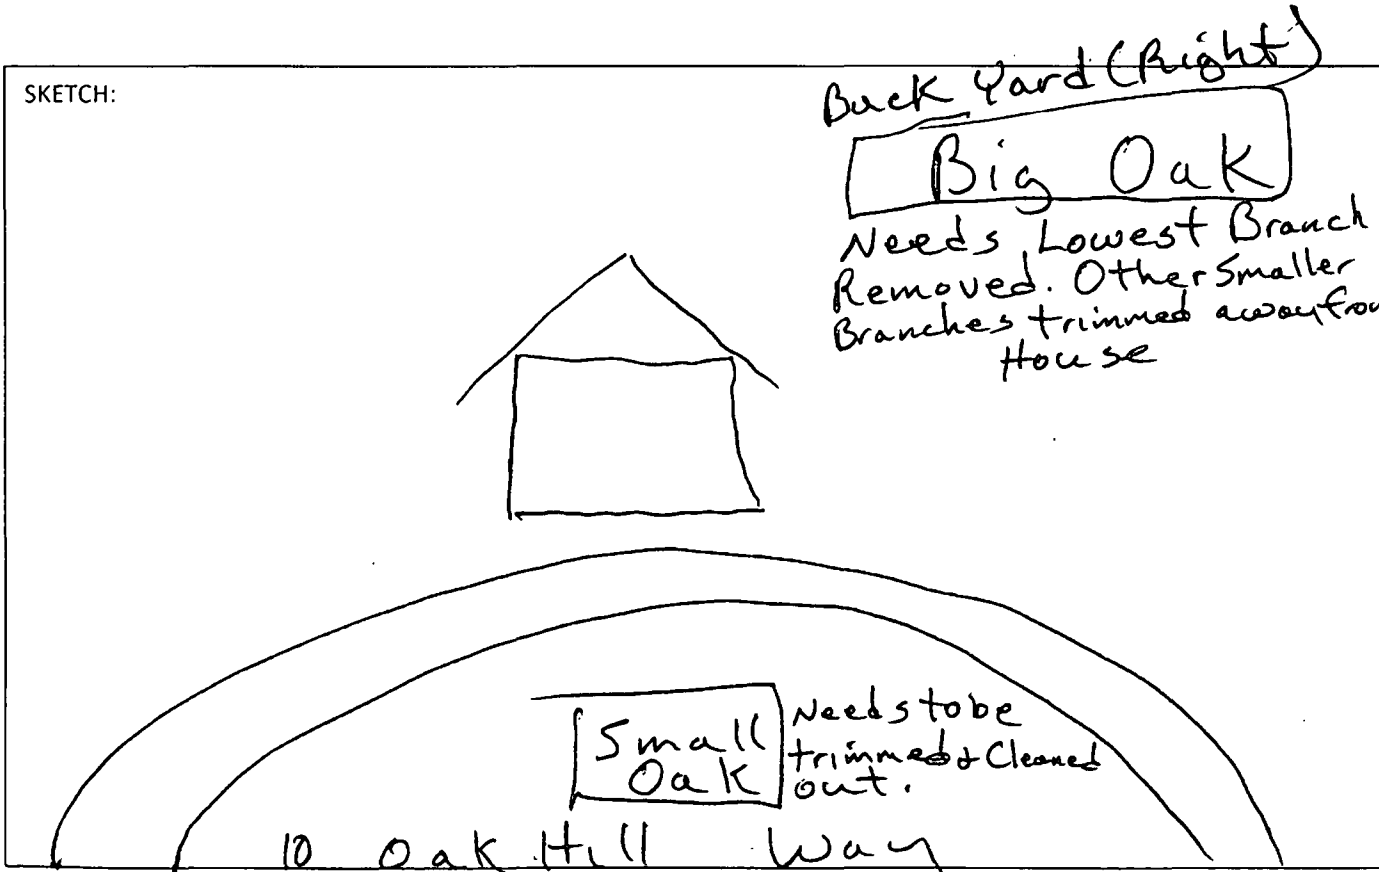 SKETCH:
Back Yard (Right)
Big Oak
Needs Lowest Branch
Removed. Other Smaller
Branches trimmed away from
House
Small
Oak
Needs to be
trimmed & Cleaned
out.
10 Oak Hill Way